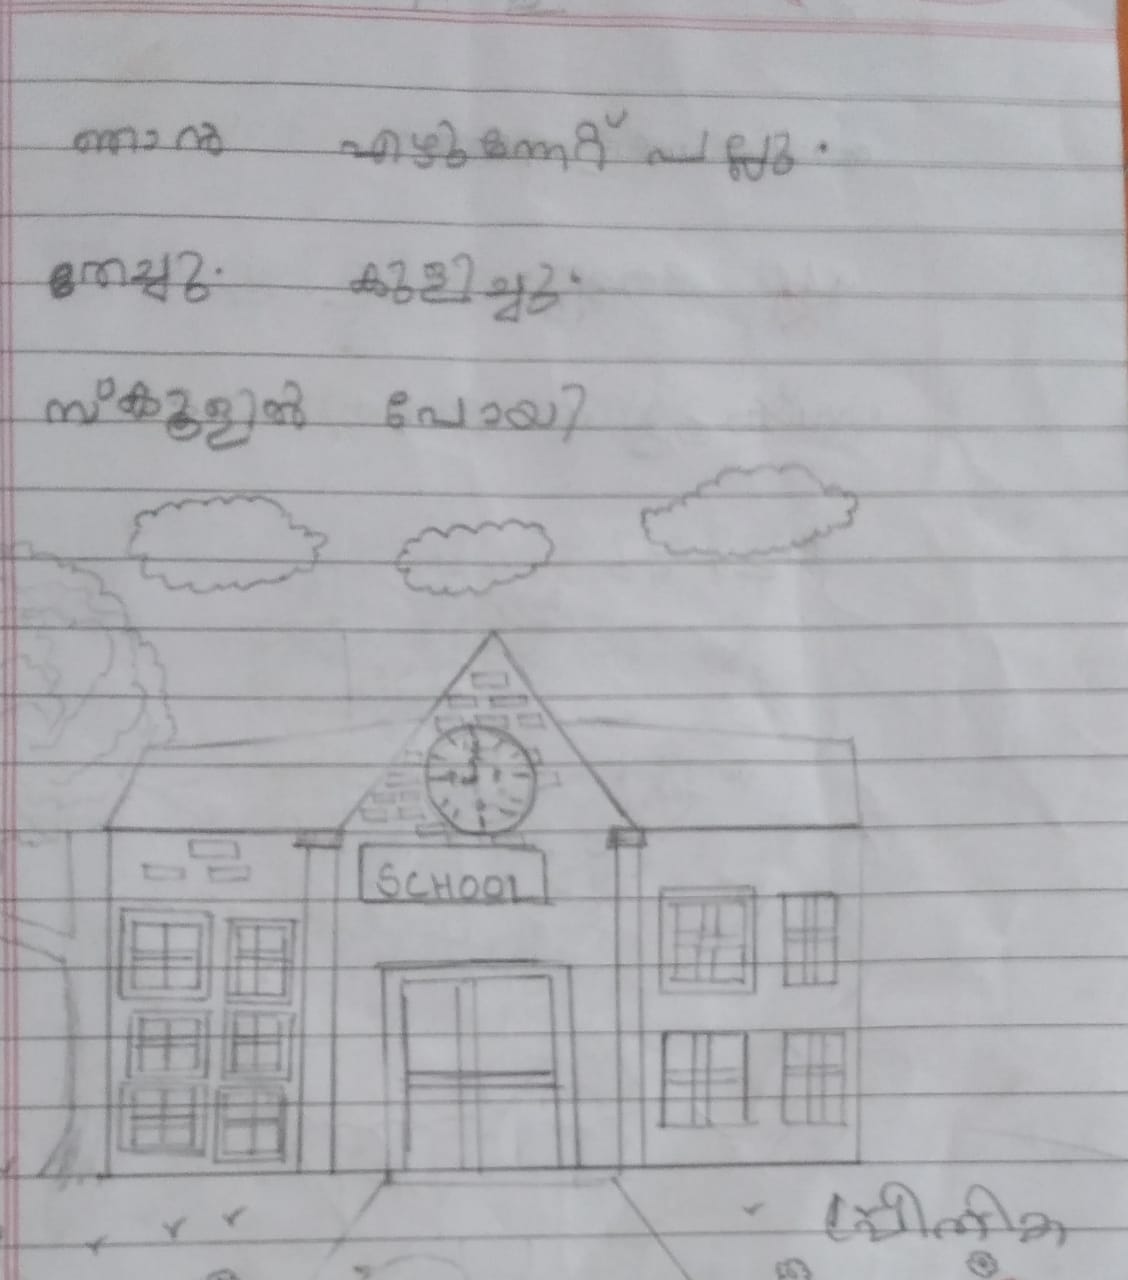 ഞാൻ എഴുന്നേറ്റ് പല്ലു.
തേച്ചു. കുളിച്ചു.
സ്കൂളിൽ പോയി
SCHOOL